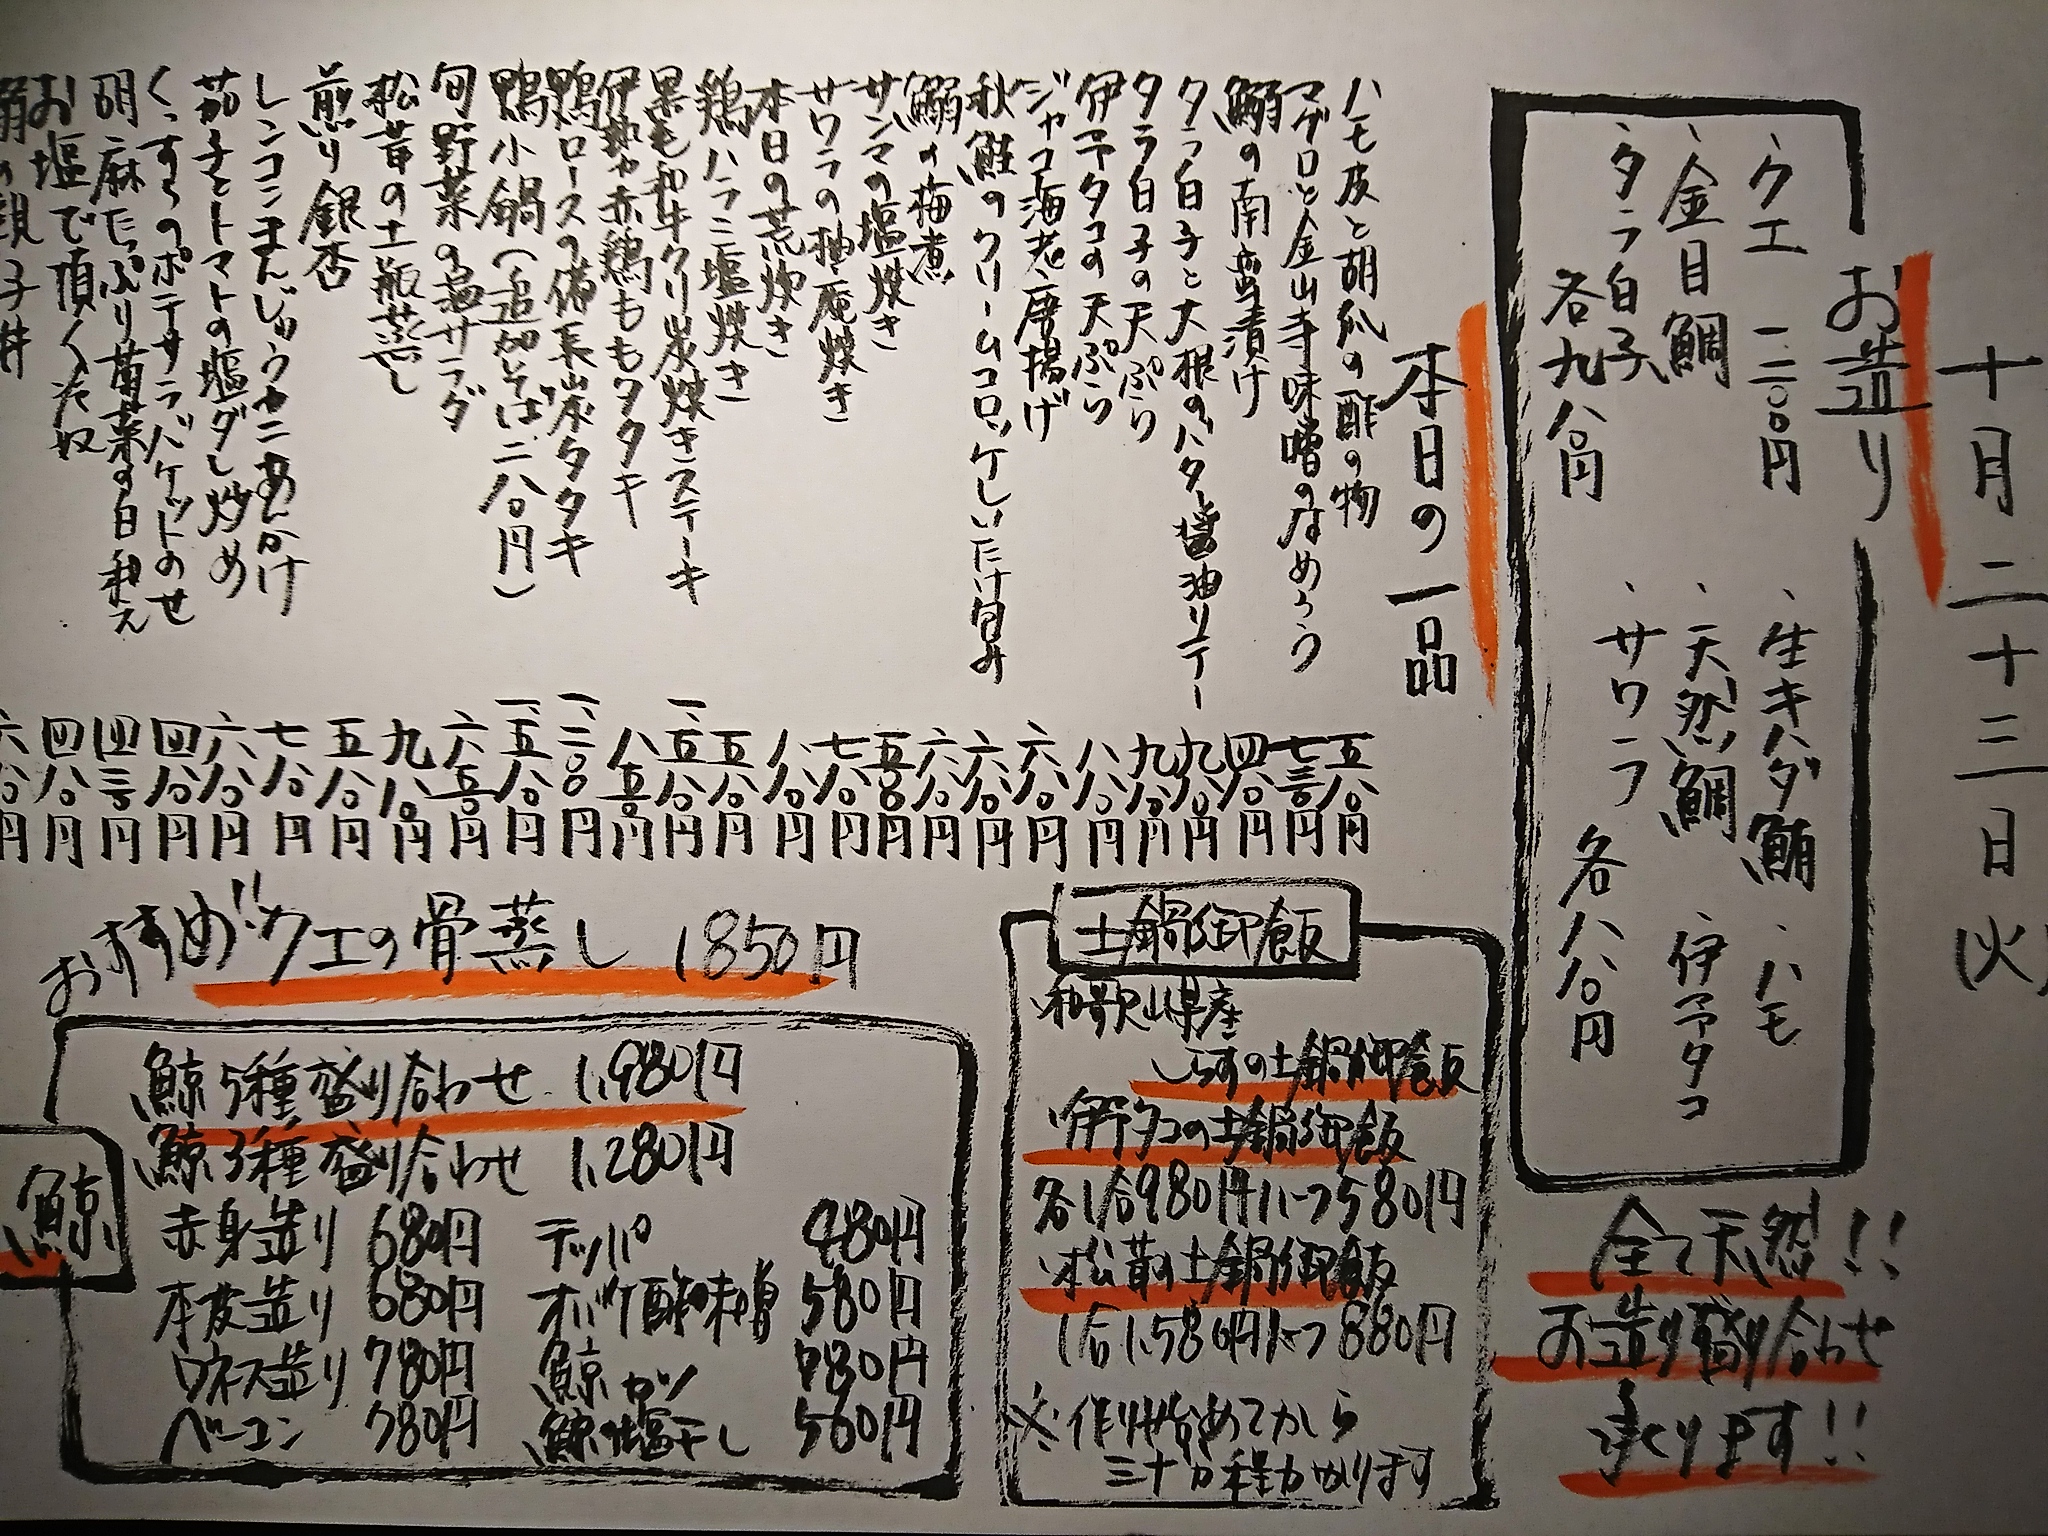 十月二十三日(火)
お造り
、クエ 一二〇〇円
、金目鯛
、タラ白子
各九八〇円
、生キハダ鮪 、ハモ
、天然鯛 、伊予タコ
、サワラ 各八八〇円
全て天然!!
お造り盛り合わせ
承ります!!
本日の一品
ハモ皮と胡瓜の酢の物 五八〇円
マグロと金山寺味噌のなめろう 七三〇円
鰯の南蛮漬け 四八〇円
タラ白子と大根のバター醤油ソテー 九八〇円
タラ白子の天ぷら 九八〇円
伊予タコの天ぷら 八八〇円
ジャコ海老唐揚げ 六八〇円
秋鮭のクリームコロッケしいたけ包み 六八〇円
鰯の梅煮 六八〇円
サンマの塩焼き 五八〇円
サワラの柚庵焼き 七八〇円
本日の荒炊き 八八〇円
鶏ハラミ塩焼き 五八〇円
黒毛和牛クリ炭焼きステーキ 一、五八〇円
伊勢赤鶏ももタタキ 八五〇円
鴨ロースの備長炭タタキ 一、二〇〇円
鴨小鍋(追加そば二八〇円) 一、五八〇円
旬野菜の温サラダ 六五〇円
松茸の土瓶蒸し 九八〇円
煎り銀杏 五八〇円
レンコンまんじゅうカニあんかけ 七八〇円
茄子とトマトの塩ダレ炒め 六八〇円
くっすらのポテサラバケットのせ 四八〇円
胡麻たっぷり菊菜の白和え 四三〇円
お塩で頂くたぬ奴 四八〇円
の親子丼 六八〇円
土鍋御飯
、和歌山県産
しらすの土鍋御飯
、伊予タコの土鍋御飯
各1合980円ハーフ580円
、松茸の土鍋御飯
1合1,580円ハーフ880円
※作り始めてから
三十分程かかります
おすすめ!!クエの骨蒸し 1850円
鯨
、鯨5種盛り合わせ 1,980円
、鯨3種盛り合わせ 1,280円
、赤身造り 680円
、本皮造り 680円
、ウネス造り 780円
、ベーコン 780円
、テッパ 480円
、オバケ酢味噌 580円
、鯨カツ 980円
、鯨の塩干し 560円